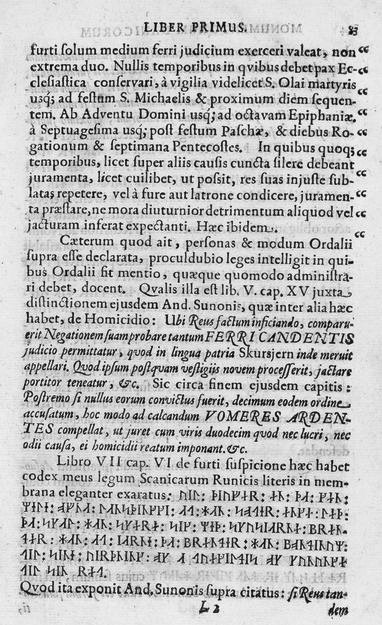 LIBER PRIMUS. 83
furti solum medium ferri judicium exerceri valeat, non
extrema duo. Nullis temporibus in qvibus debet pax Ec-
clesiastica conservari, à vigilia videlicet S. Olai martyris
usq; ad festum S. Michaelis & proximum diem sequen-
tem. Ab Adventu Domini usq; ad octavam Epiphaniæ.
à Septuagesima usq; post festum Paschæ, & diebus Ro-
gationum & septimana Pentecostes. In quibus quoq;
temporibus, licet super aliis causis cuncta silere debeant
juramenta, licet cuilibet, ut possit, res suas injuste sub-
latas repetere, vel à fure aut latrone condicere, juramen-
ta præstare, ne mora diuturnior detrimentum aliquod vel
jacturam inferat expectanti. Hæc ibidem.
Cæterum quod ait, personas & modum Ordalii
supra esse declarata, proculdubio leges intelligit in qui-
bus Ordalii fit mentio, quæque quomodo administra-
ri debet, docent. Qvalis illa est lib. V. cap. XV juxta
distinctionem ejusdem And. Sunonis, quæ inter alia hæc
habet, de Homicidio: Ubi Reus factum inficiando, comparu-
erit Negationem suam probare tantum FERRI CANDENTIS
judicio permittatur, quod in lingua patria Skursjern inde meruit
appellari. Quod ipsum postqvam vestigiis novem processerit, jactare
portitor teneatur, &c. Sic circa finem ejusdem capitis:
Postremo si nullus eorum convictus fuerit, decimum eodem ordine
accusatum, hoc modo ad calcandum VOMERES ARDEN-
TES compellat, ut juret cum viris duodecim quod nec lucri, nec
odii causa, ei homicidii reatum imponant. &c.
Libro VII cap. VI de furti suspicione hæc habet
codex meus legum Scanicarum Runicis literis in mem-
brana eleganter exaratus:
Qvod ita exponit And. Sunonis supra citatus: si Reus tan-
L 2 dem